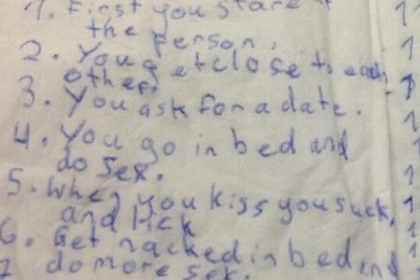 1. First you stare
the person.
2. You get close to each
other.
3. You ask for a date.
4. You go in bed and
do sex.
5. When you kiss you suck
and lick
6. Get nacked in bed and
7 do more sex.